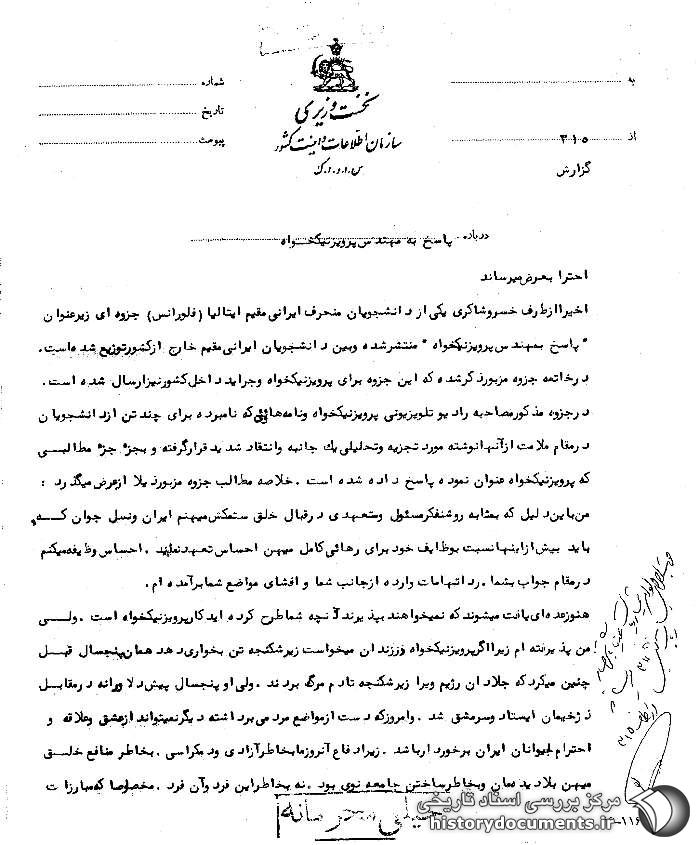 به
شماره
نخست وزیری
تاریخ
سازمان اطلاعات و امنیت کشور
از ۳۱۵
پیوست
س.ا.و.ا.ک
گزارش
درباره پاسخ به مهندس پرویز نیکخواه
احتراما بعرض میرساند
اخیرا از طرف خسرو شاکری یکی از دانشجویان منحرف ایرانی مقیم ایتالیا (فلورانس) جزوه ای زیر عنوان
" پاسخ بمهندس پرویز نیکخواه " منتشر شده و بین دانشجویان ایرانی مقیم خارج از کشور توزیع شده است.
در خاتمه جزوه مزبور ذکر شده که این جزوه برای پرویز نیکخواه و جراید داخل کشور نیز ارسال شده است.
در جزوه مذکور مصاحبه رادیو تلویزیونی پرویز نیکخواه و نامه هائی که نامبرده برای چند تن از دانشجویان
در مقام ملامت از آنها نوشته مورد تجزیه و تحلیلی یک جانبه و انتقاد شدید قرار گرفته و بجز جز مطالبی
که پرویز نیکخواه عنوان نموده پاسخ داده شده است . خلاصه مطالب جزوه مزبور ذیلا از عرض میگذرد :
من باین دلیل که بمثابه روشنفکر مسئول و متعهدی در قبال خلق ستمکش میهنم ایران و نسل جوان که
باید بیش از اینها نسبت بوظایف خود برای رهائی کامل میهن احساس تعهد نماید . احساس وظیفه میکنم
در مقام جواب بشما . رد اتهامات وارده از جانب شما و افشای مواضع شما برآمده ام .
هنوز عده ای یافت میشوند که نمیخواهند بپذیرند آنچه شما طرح کرده اید کار پرویز نیکخواه است . ولی
من پذیرفته ام زیرا اگر پرویز نیکخواه فرزند ان میخواست زیر شکنجه تن بخواری دهد همان پنجسال قبل
چنین میکرد که جلادان رژیم ویرا زیر شکنجه تا دم مرگ بردند . ولی او پنجسال پیش دلاورانه در مقابل
دژخیمان ایستاد و سرمشق شد . و امروز که دست از مواضع مردمی برداشته دیگر نمیتواند از عشق و علاقه و
احترام جوانان ایران برخوردار باشد . زیرا دفاع آنروز ما بخاطر آزادی و دمکراسی . بخاطر منافع خلق
میهن بلا دیده مان و بخاطر ساختن جامعه نوی بود . نه بخاطر این فرد و آن فرد . مخصوصا که مبارزات
خیلی محرمانه
۱۱۶
مرکز بررسی اسناد تاریخی
historydocuments.ir